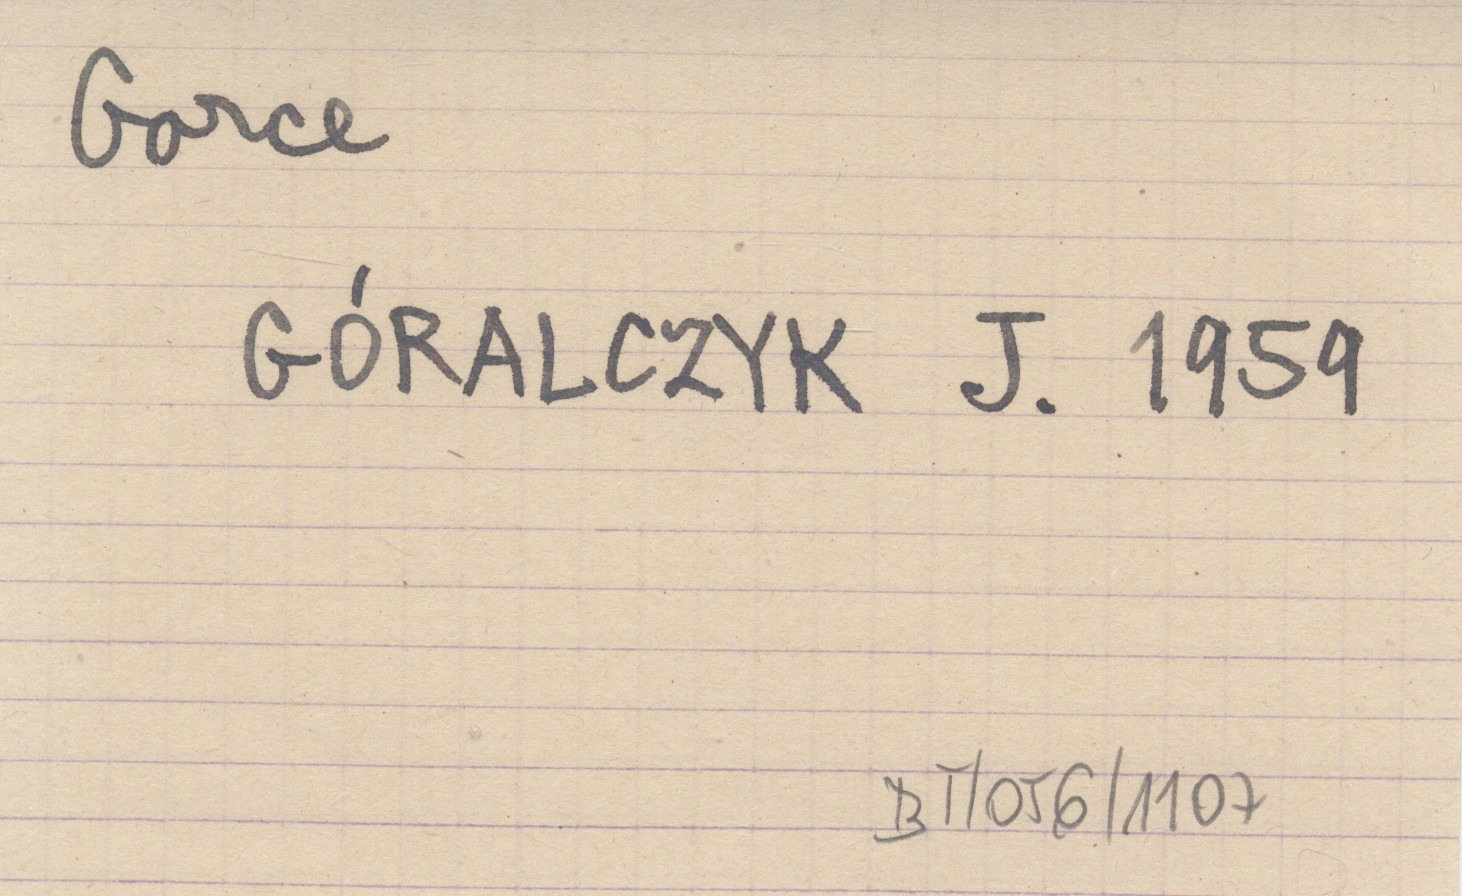 Gorce
GÓRALCZYK J. 1959
BT/056/1107